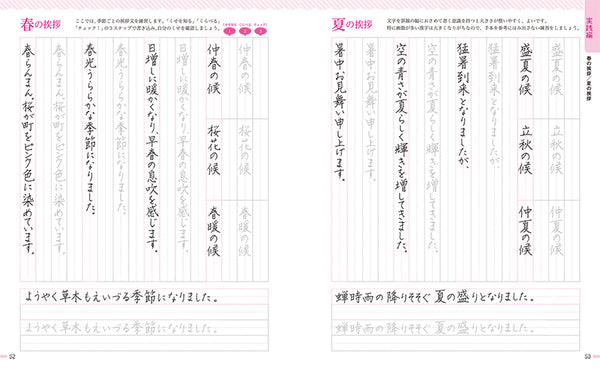 春の挨拶
ここでは、季節ごとの挨拶文を練習します。「くせを知る」「くらべる」
「チェック！」の3ステップで書き込み、自分のくせを確認しましょう。
くせを知る くらべる チェック！
1 2 3
仲春の候 桜花の候 春暖の候
仲春の候 桜花の候 春暖の候
日増しに暖かくなり、早春の息吹を感じます。
日増しに暖かくなり、早春の息吹を感じます。
春光うららかな季節になりました。
春光うららかな季節になりました。
春らんまん、桜が町をピンク色に染めています。
春らんまん、桜が町をピンク色に染めています。
ようやく草木もえいづる季節になりました。
ようやく草木もえいづる季節になりました。
52
実践編
春の挨拶／夏の挨拶
夏の挨拶
文字を罫線の幅におさめて書く意識を持つと大きさが整いやすく、よいです。
特に画数が多い漢字は大きくなりがちなので、手本を参考にはみ出さない練習をしましょう。
盛夏の候 立秋の候 仲夏の候
盛夏の候 立秋の候 仲夏の候
猛暑到来となりましたが、
猛暑到来となりましたが、
空の青さが夏らしく輝きを増してきました。
空の青さが夏らしく輝きを増してきました。
暑中お見舞い申し上げます。
暑中お見舞い申し上げます。
蝉時雨の降りそそぐ夏の盛りとなりました。
蝉時雨の降りそそぐ夏の盛りとなりました。
53